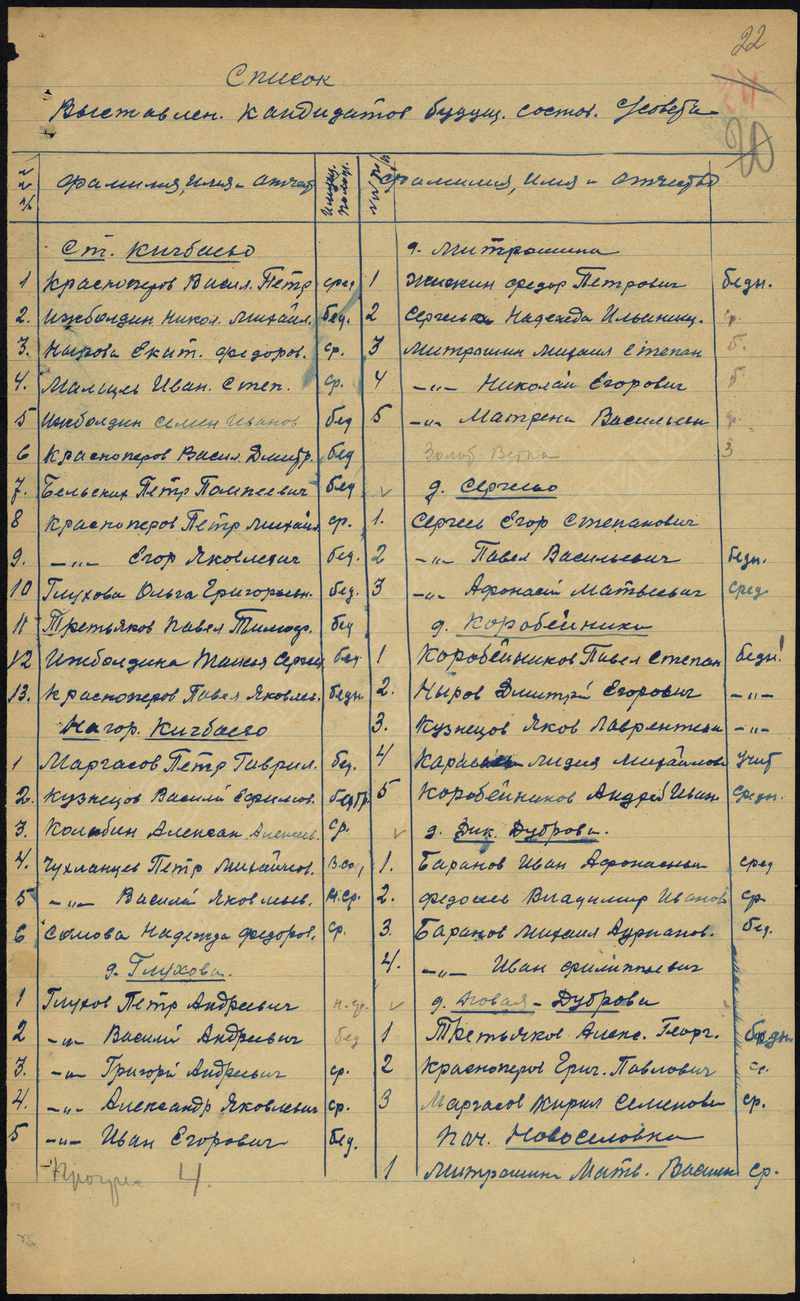 22
20
Список
Выставлен. кандидатов будущ. состов. С/совета
№ № п/п Фамилия, Имя и отчест Имущ. полож.
Ст. Кичбаево
1 Красноперов Васил. Петр сред
2. Ижболдин Никол. Михайл. бед.
3. Нырова Екат. Федоров. ср.
4. Малцель Иван Степ. ср.
5 Ижболдин Семен Иванов бед
6 Красноперов Васил. Дмитр. бед
7. Бельских Петр Помпеевич бед
8 Красноперов Петр Михайл ср.
9. -"- Егор Яковлевич бед.
10 Глухова Ольга Григорьевн. бед.
11 Третьяков Павел Тимофр. бед
12 Ижболдина Таисья Сергее бед
13. Красноперов Павел Яковлев. бедн
Нагор. Кичбаево
1 Маргасов Петр Гаврил. бед.
2. Кузнецов Василий Ефимов.
3. Колюбин Алексан Алексеев. ср.
4. Чухланцев Петр Михайлов.
5 -"- Василий Яковлев. н.ср.
6 Сомова Надежда Федоров. ср.
д. Глухова.
1 Глухов Петр Андреевич н.ср.
2 -"- Василий Андреевич бед
3. -"- Григорий Андреевич ср.
4. -"- Александр Яковлевич ср.
5 -"- Иван Егорович бед.
4.
№№ п/п Фамилия, Имя и отчество
д. Митрошина
1 Жижин Федор Петрович бедн.
2 Сергеева Надежда Ильинич. ср.
3 Митрошин Михаил Степан б.
4 -"- Николай Егорович б
5 -"- Матрена Васильевн ср.
3
д. Сергеево
1. Сергеев Егор Степанович
2 -"- Павел Васильевич бедн.
3 -"- Афонасий Матвеевич сред
д. Коробейники
1 Коробейников Павел Степан бедн!
2. Ныров Дмитрий Егорович -"-
3. Кузнецов Яков Лаврентьев -"-
4 Лидия Михайлов учит
5 Коробейников Андрей Иван средн.
д. Дик. Дуброва.
1. Баранов Иван Афонасьев сред
2. Федосеев Владимир Иванов ср.
3. Баранов Михаил Адрианов. бед.
4. -"- Иван Филиппович
д. Новая-Дуброва
1 Третьяков Алекс. Георг. бедн
2 Красноперов Григ. Павлович ср.
3 Маргасов Кирил Семенови ср.
поч. Новоселовка
1 Митрошин Матв. Васильев ср.